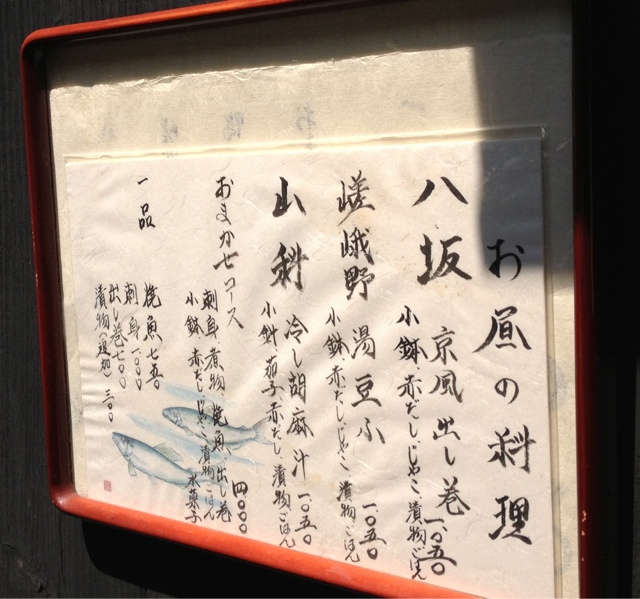 お昼の料理
八坂
京風出し巻 一、〇五〇
小鉢、赤だし、じゃこ、漬物、ごはん
嵯峨野
湯豆ふ 一〇五〇
小鉢、赤だし、じゃこ、漬物、ごはん
山科
冷し胡麻汁 一〇五〇
小鉢、茄子赤だし、漬物、ごはん
おまかせコース 四〇〇〇
刺身、煮物、焼魚、出し巻
小鉢、赤だし、じゃこ、漬物、ごはん
水菓子
一品
焼魚七五〇
刺身一、〇〇〇
出し巻七〇〇
漬物(追加)三〇〇